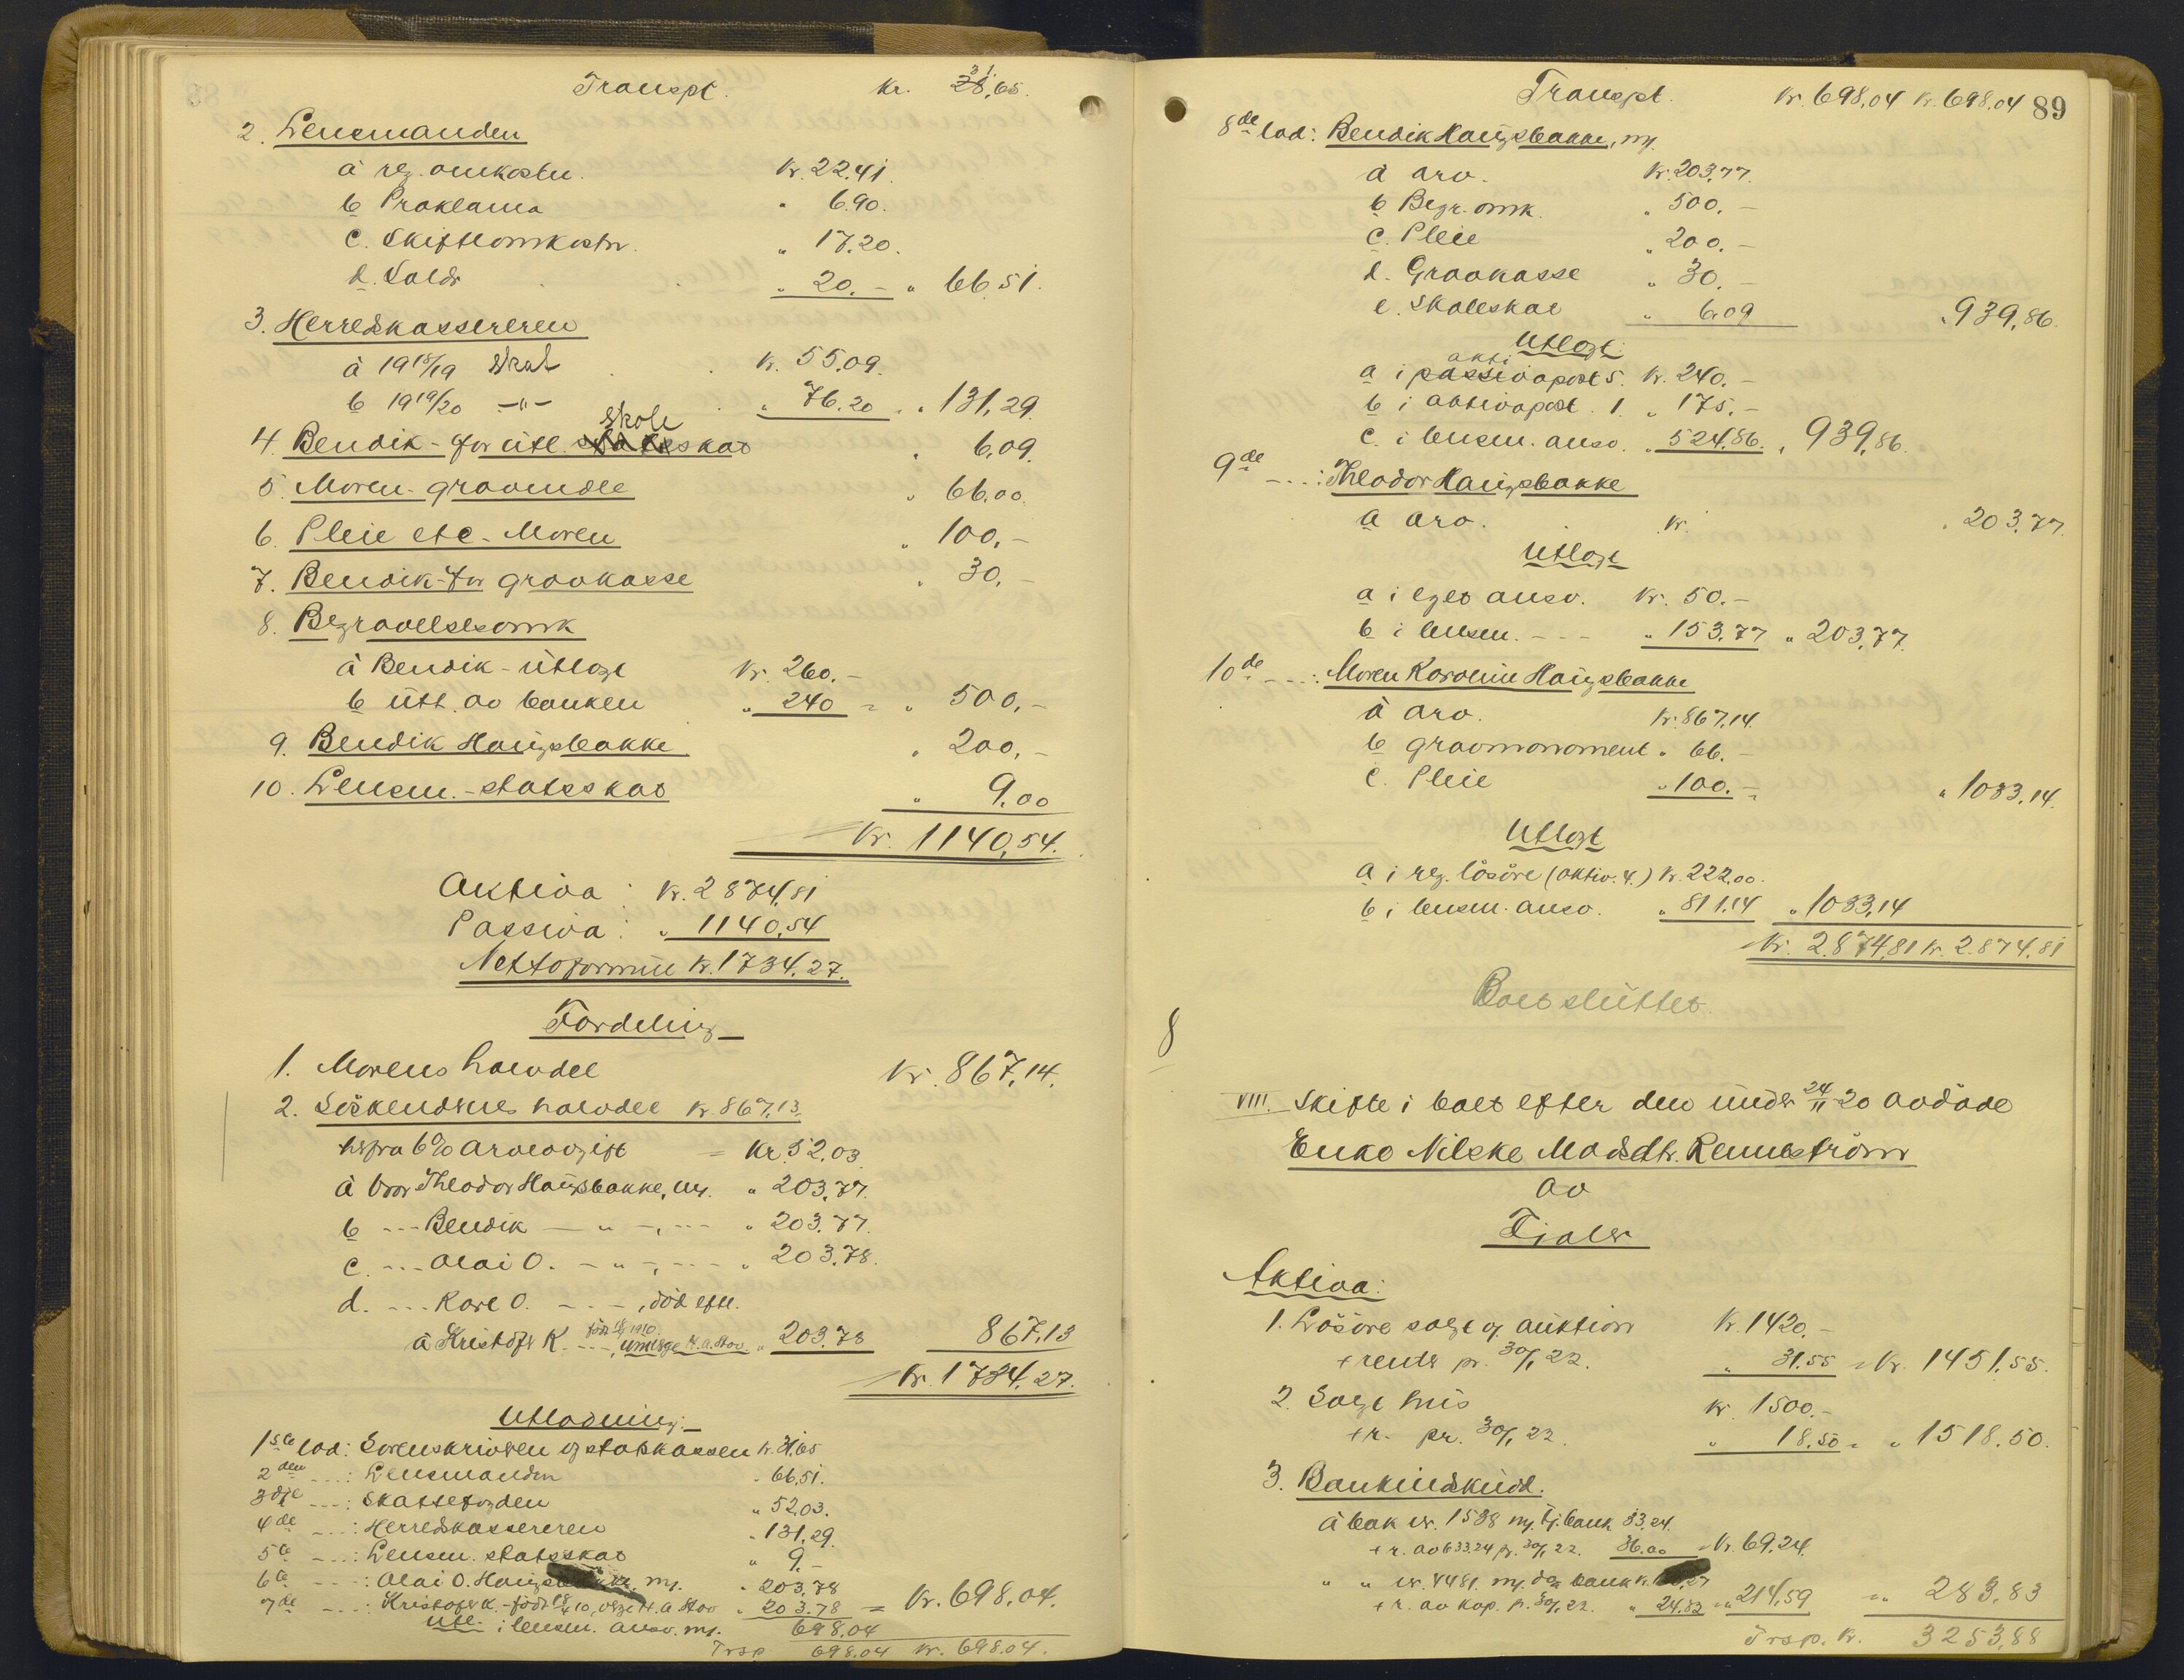 Transpt. kr. 31,65.
2. Lensmanden
a reg. omkostn. kr. 22.41.
b Proklama " 6.90.
c. Skifteomkostn. " 17.20.
d. Saldo " 20.- " 66.51.
3. Herredskassereren
a 1918/19 Skat kr. 55.09.
b 1919/20 -"- " 76.20 " 131,29.
4. Bendik - for utl. skoleskat " 6,09.
5. Moren - gravmdle " 66.00.
6. Pleie etc. - Moren " 100,-
7. Bendik - for gravkasse " 30,-
8. Begravelsesomk
a Bendik - utlagt kr. 260.-
b utt. av banken " 240 = " 500,-
9. Bendik Haugsbakke " 200,-
10. Lensm. - statsskat " 9.00
kr. 1140,54.
Aktiva: kr. 2874,81
Passiva: " 1140,54
Nettoformue kr. 1734.27.
Fordeling
1. Morens halvdel kr. 867,14.
2. Søskendenes halvdel kr. 867,13.
herfra 6% arveavgift = kr. 52.03
a bror Theodor Haugsbakke, my. " 203,77.
b --- Bendik - " -, --- " 203.77.
c. --- Olai O. - " -, --- " 203.78.
d. --- Kare O. - - -, død eftl.
a Kristofer K. født 18/4 1910. ---, umynd. H. a. Stov. " 203.78 867,13
kr. 1734,27.
Utlodning:
1ste lod: Sorenskriveren og statskassen kr. 31,65
2den ---: Lensmanden " 66,51.
3dje ---: Skattefogden " 52,03.
4de ---: Herredskassereren " 131,29.
5te ---: Lensm. statsskat " 9.-
6te ---: Olai O. Haugsbakke, my. " 203,78
7de ---: Kristofer K. - født 18/4 10, v. H. a Stov " 203.78 = kr. 698.04.
Utl. i lensm. ansv. my. 698,04
Trsp 698.04 kr. 698.04.
Transpt. kr. 698,04 kr. 698.04 89
8de lod: Bendik Haugsbakke, my.
a arv. kr. 203,77.
b Begr. omk. " 500.-
c. Pleie " 200.-
d. Gravkasse " 30.-
e. Skoleskat " 6,09 " 939,86.
Utlagt:
akti
a i passivapost 5. kr. 240.-
b i aktivapost. 1. " 175.-
c. i lensm. ansv. " 524,86. " 939,86.
9de ---: Theodor Haugsbakke
a arv. kr. " 203,77.
Utlagt
a i eget ansv. kr. 50.-
b i lensm. --- " 153,77 " 203,77.
10de ---: Moren Karoline Haugsbakke
a arv. kr. 867,14.
b gravmonoment " 66.-
c. Pleie " 100.- " 1033,14.
Utlagt
a i reg. løsøre (aktiv. 4.) kr. 222,00.
b i lensm. ansv. " 811,14 " 1033,14
kr. 2874,81 kr. 2874,81
Boet sluttet.
8
VIII. Skifte i boet efter den under 24/11 20 avdøde
Enke Nilske Madsdtr. Rennestrøm
av
Fjaler
Aktiva:
1. Løsøre solgt v. auktion kr. 1420.-
+ rente pr. 30/1 22. " 31.55 = kr. 1451,55.
2. Solgt hus kr. 1500.-
+ r. pr. 30/1 22. " 18,50 = " 1518.50.
3. Bankindskudd.
a bok nr. 1538 my. Fj. bank 33.24.
+ r. av 633.24 pr. 30/1 22. 36.00 = kr. 69.24.
" " nr. 4481. my. bank kr.
+ r. av kap. p. 30/1 22. " 24.82 = " 214,59 = " 283,83
Trsp. kr. 3253,88